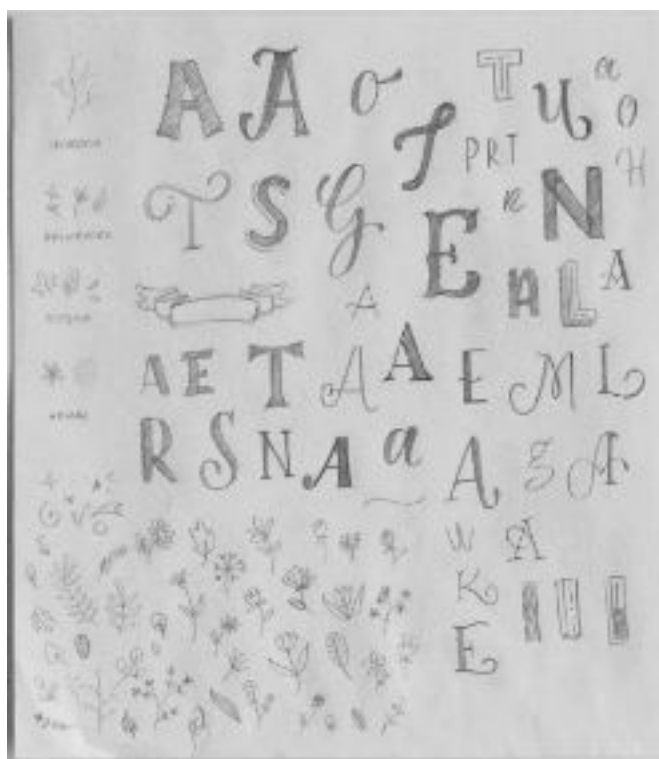 A A o T U a
O
T PRT H
T S G R N
E A L A
A
A E T A A E M L
R S N A a A g A
W A
K
E I I I